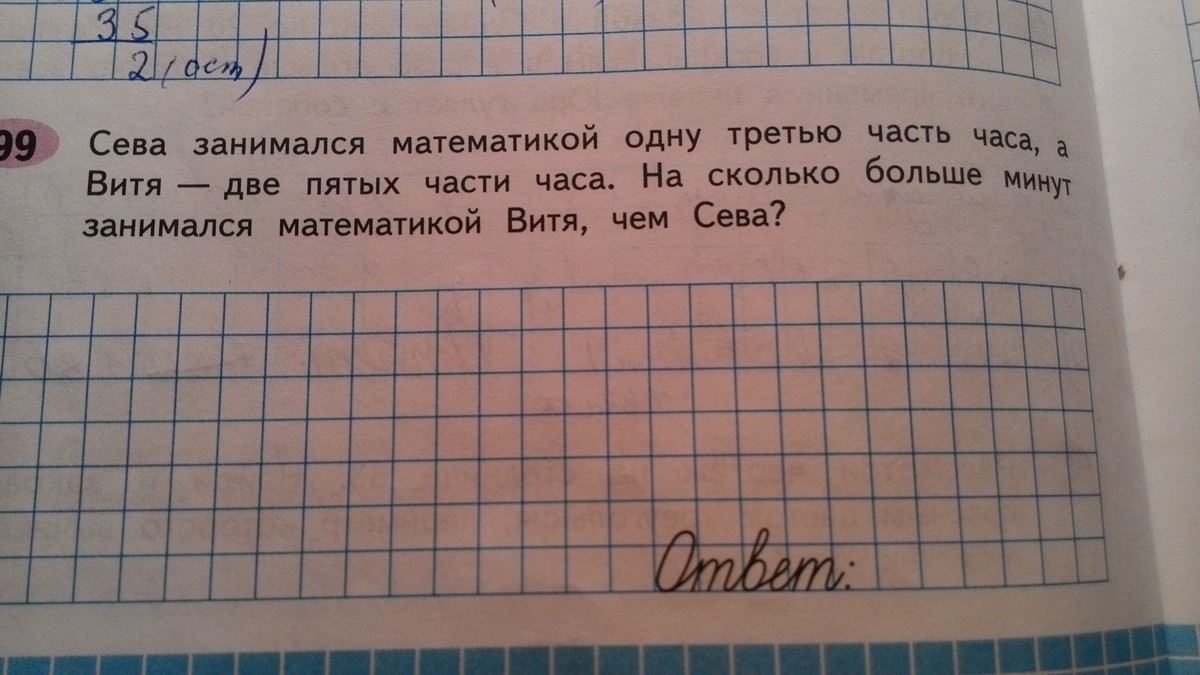 35
2 (ост)
99 Сева занимался математикой одну третью часть часа, а
Витя — две пятых части часа. На сколько больше минут
занимался математикой Витя, чем Сева?
Ответ: